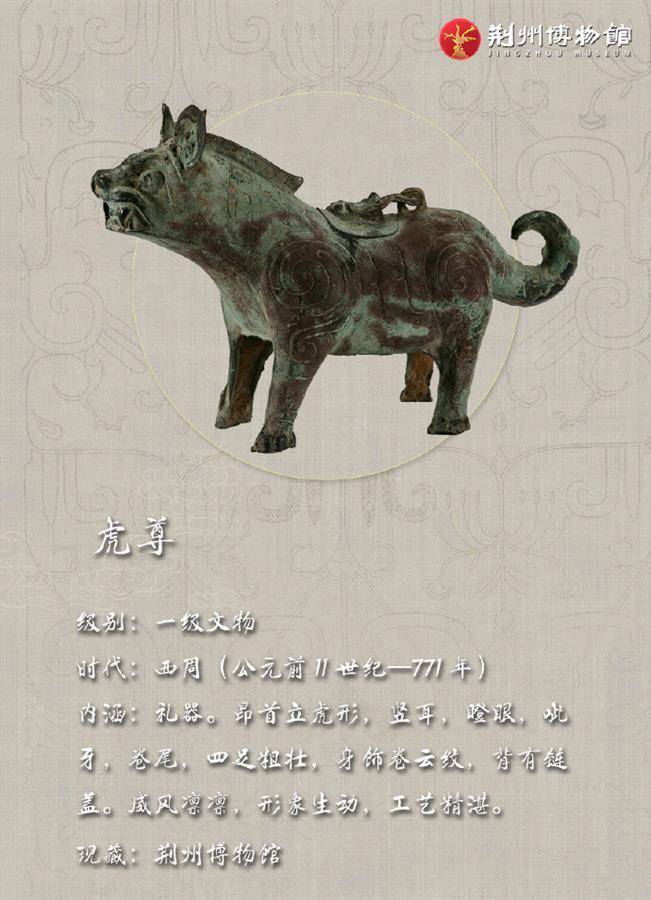 荆州博物館
JINGZHOU MUSEUM
虎尊
级别：一级文物
时代：西周（公元前11世纪—771年）
内涵：礼器。昂首立虎形，竖耳，瞪眼，呲
牙，卷尾，四足粗壮，身饰卷云纹，背有链
盖。威风凛凛，形象生动，工艺精湛。
现藏：荆州博物館